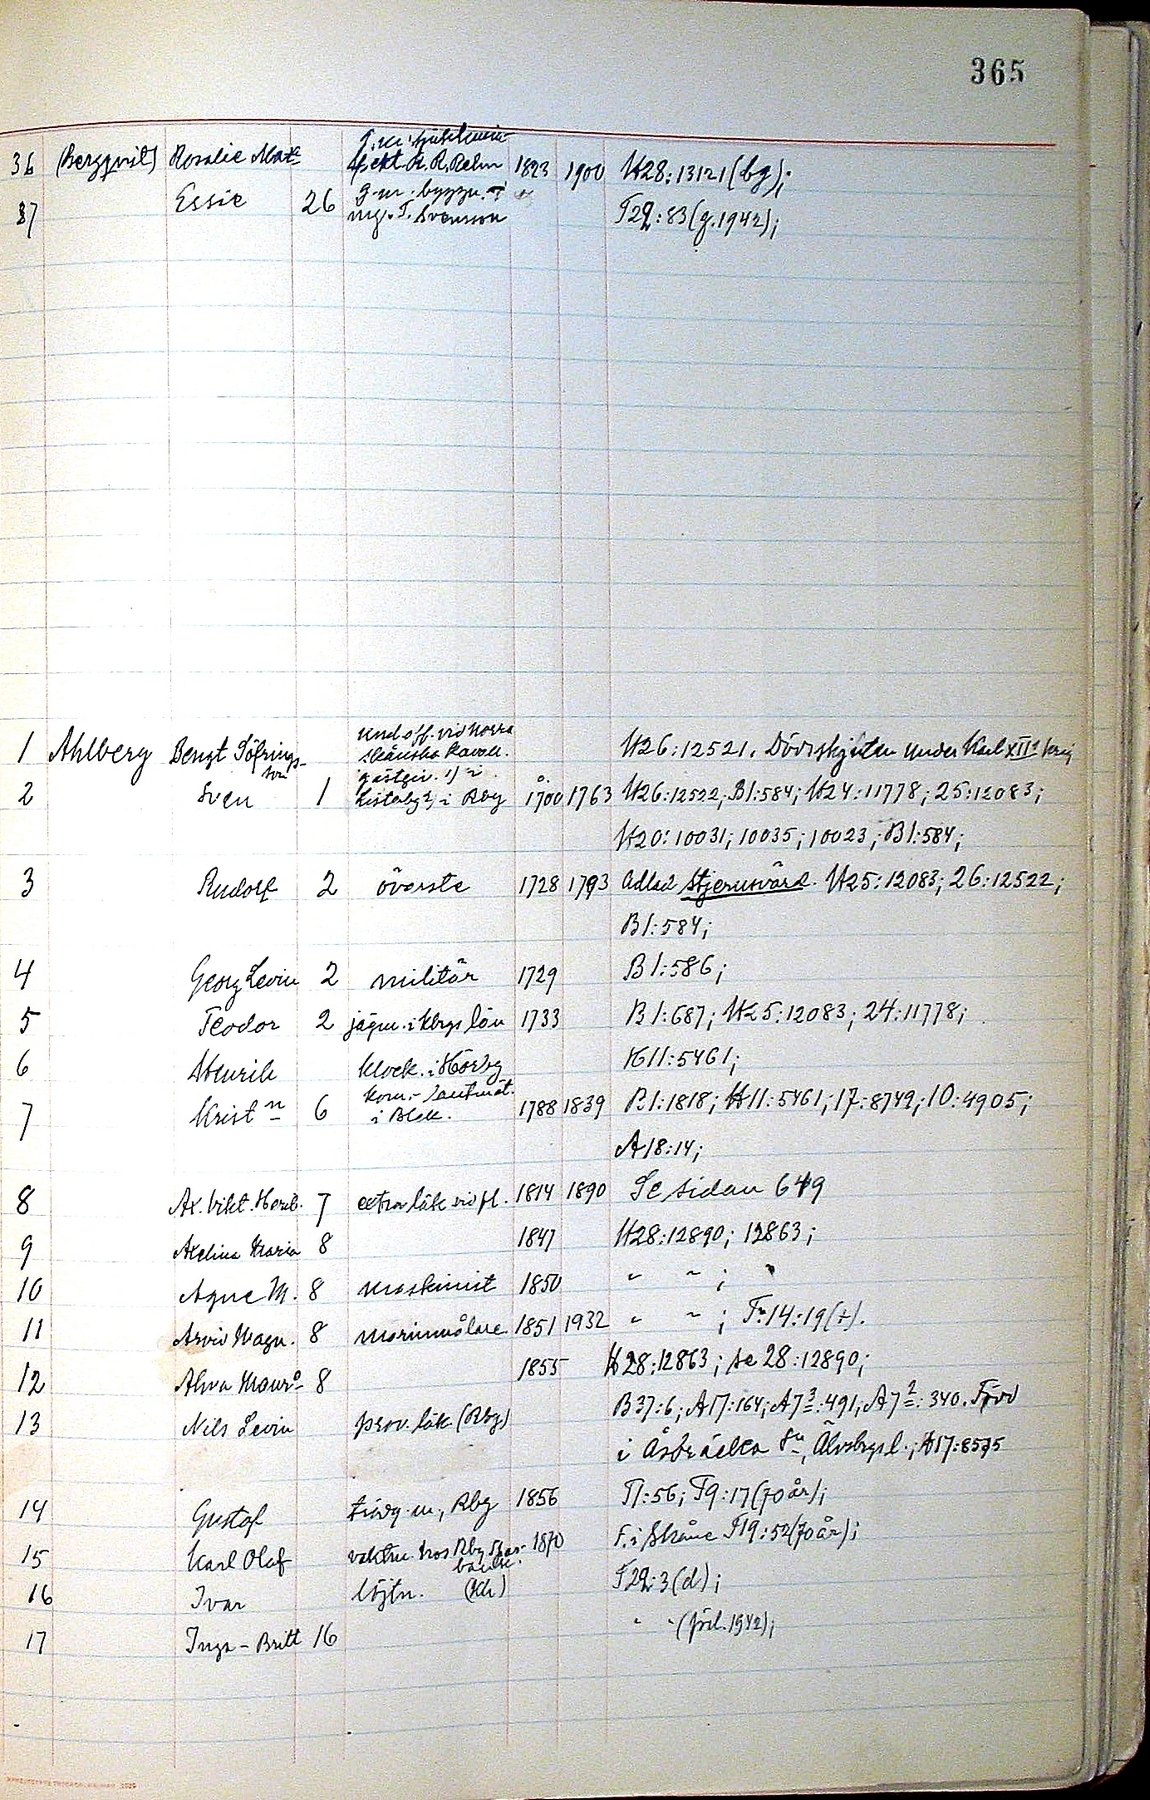 365
36 (Bergqvist) Rosalie Mat. R. R. Rehn 1823 1900 H28:13121(bg);
37 Essie 26 g.m. byggn. T. Svensson F29:83(g.1942);
1 Ahlberg Bengt Söfrings- son undoff. vid norra skånska kavall. H26:12521. Dödsskjuten under Karl XII:s krig
2 Sven 1 gästgiv. i Rby 1700 1763 H26:12522; B1:584; H24:11778; 25:12083;
H20:10031; 10035; 10023; B1:584;
3 Rudolf 2 överste 1728 1793 Adlad Stjernsvärd. H25:12083; 26:12522;
B1:584;
4 Georg Levin 2 militär 1729 B1:586;
5 Teodor 2 jägm. i Kbgs län 1733 B1:687; H25:12083; 24:11778;
6 Henrik klock. i Hörby H11:5461;
7 Krist n 6 kom.-lantmät. i Blek. 1788 1839 B1:1818; H11:5461; 17:8749; 10:4905;
A18:14;
8 Ax. Vikt. Henr. 7 extra läk. vid fl. 1814 1890 Se sidan 649
9 Axelina Maria 8 1847 H28:12890; 12863;
10 Agne M. 8 maskinist 1850 " " ; "
11 Arvid Magn. 8 marinmålare 1851 1932 " " ; F14:19(+).
12 Alma 8 1855 H28:12863; se 28:12890;
13 Nils Levin prov.läk (Rby) B37:6; A17:164; A7 3:491, A7 2:340. Född
i Åsbräcka sn, Älvsbgs l.; H17:8575
14 Gustaf Rby 1856 F1:56; F9:17(70 år);
15 Karl Olof vaktm. hos Rby Sparbank. 1870 F. i Skåne F19:52(70 år);
16 Ivar löjtn. (Kh) F29:3(d);
17 Inga-Britt 16 " " (förl. 1942);